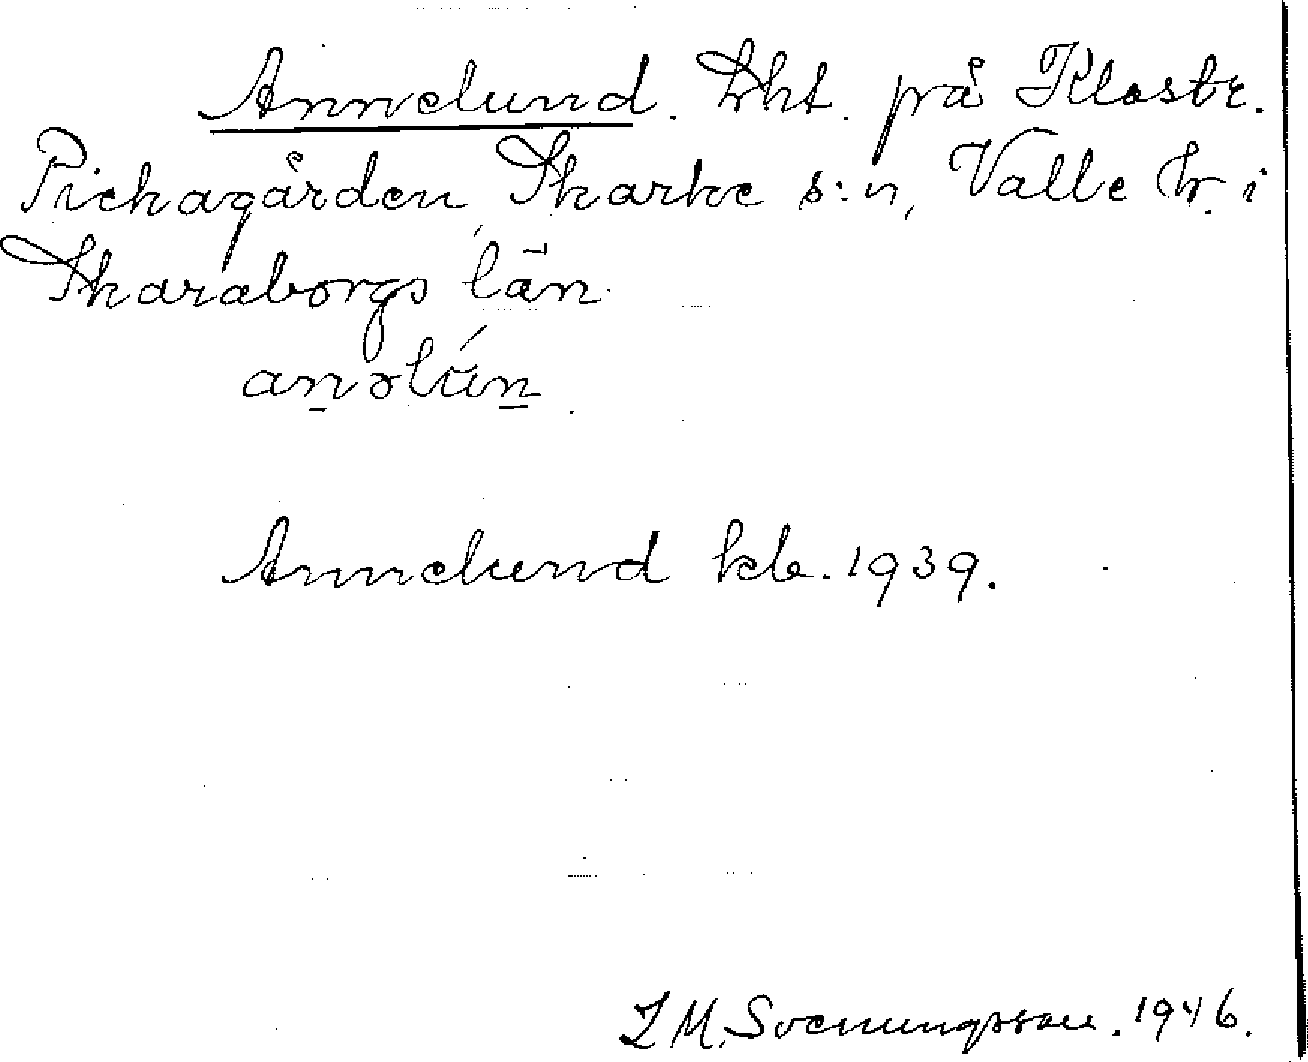 Annelund. Lht. på Klostr.
Pickagården, Skarke s:n, Valle hr. i
Skaraborgs län.
anəlún
Annelund kb. 1939.
I M. Svenungsson. 1946.